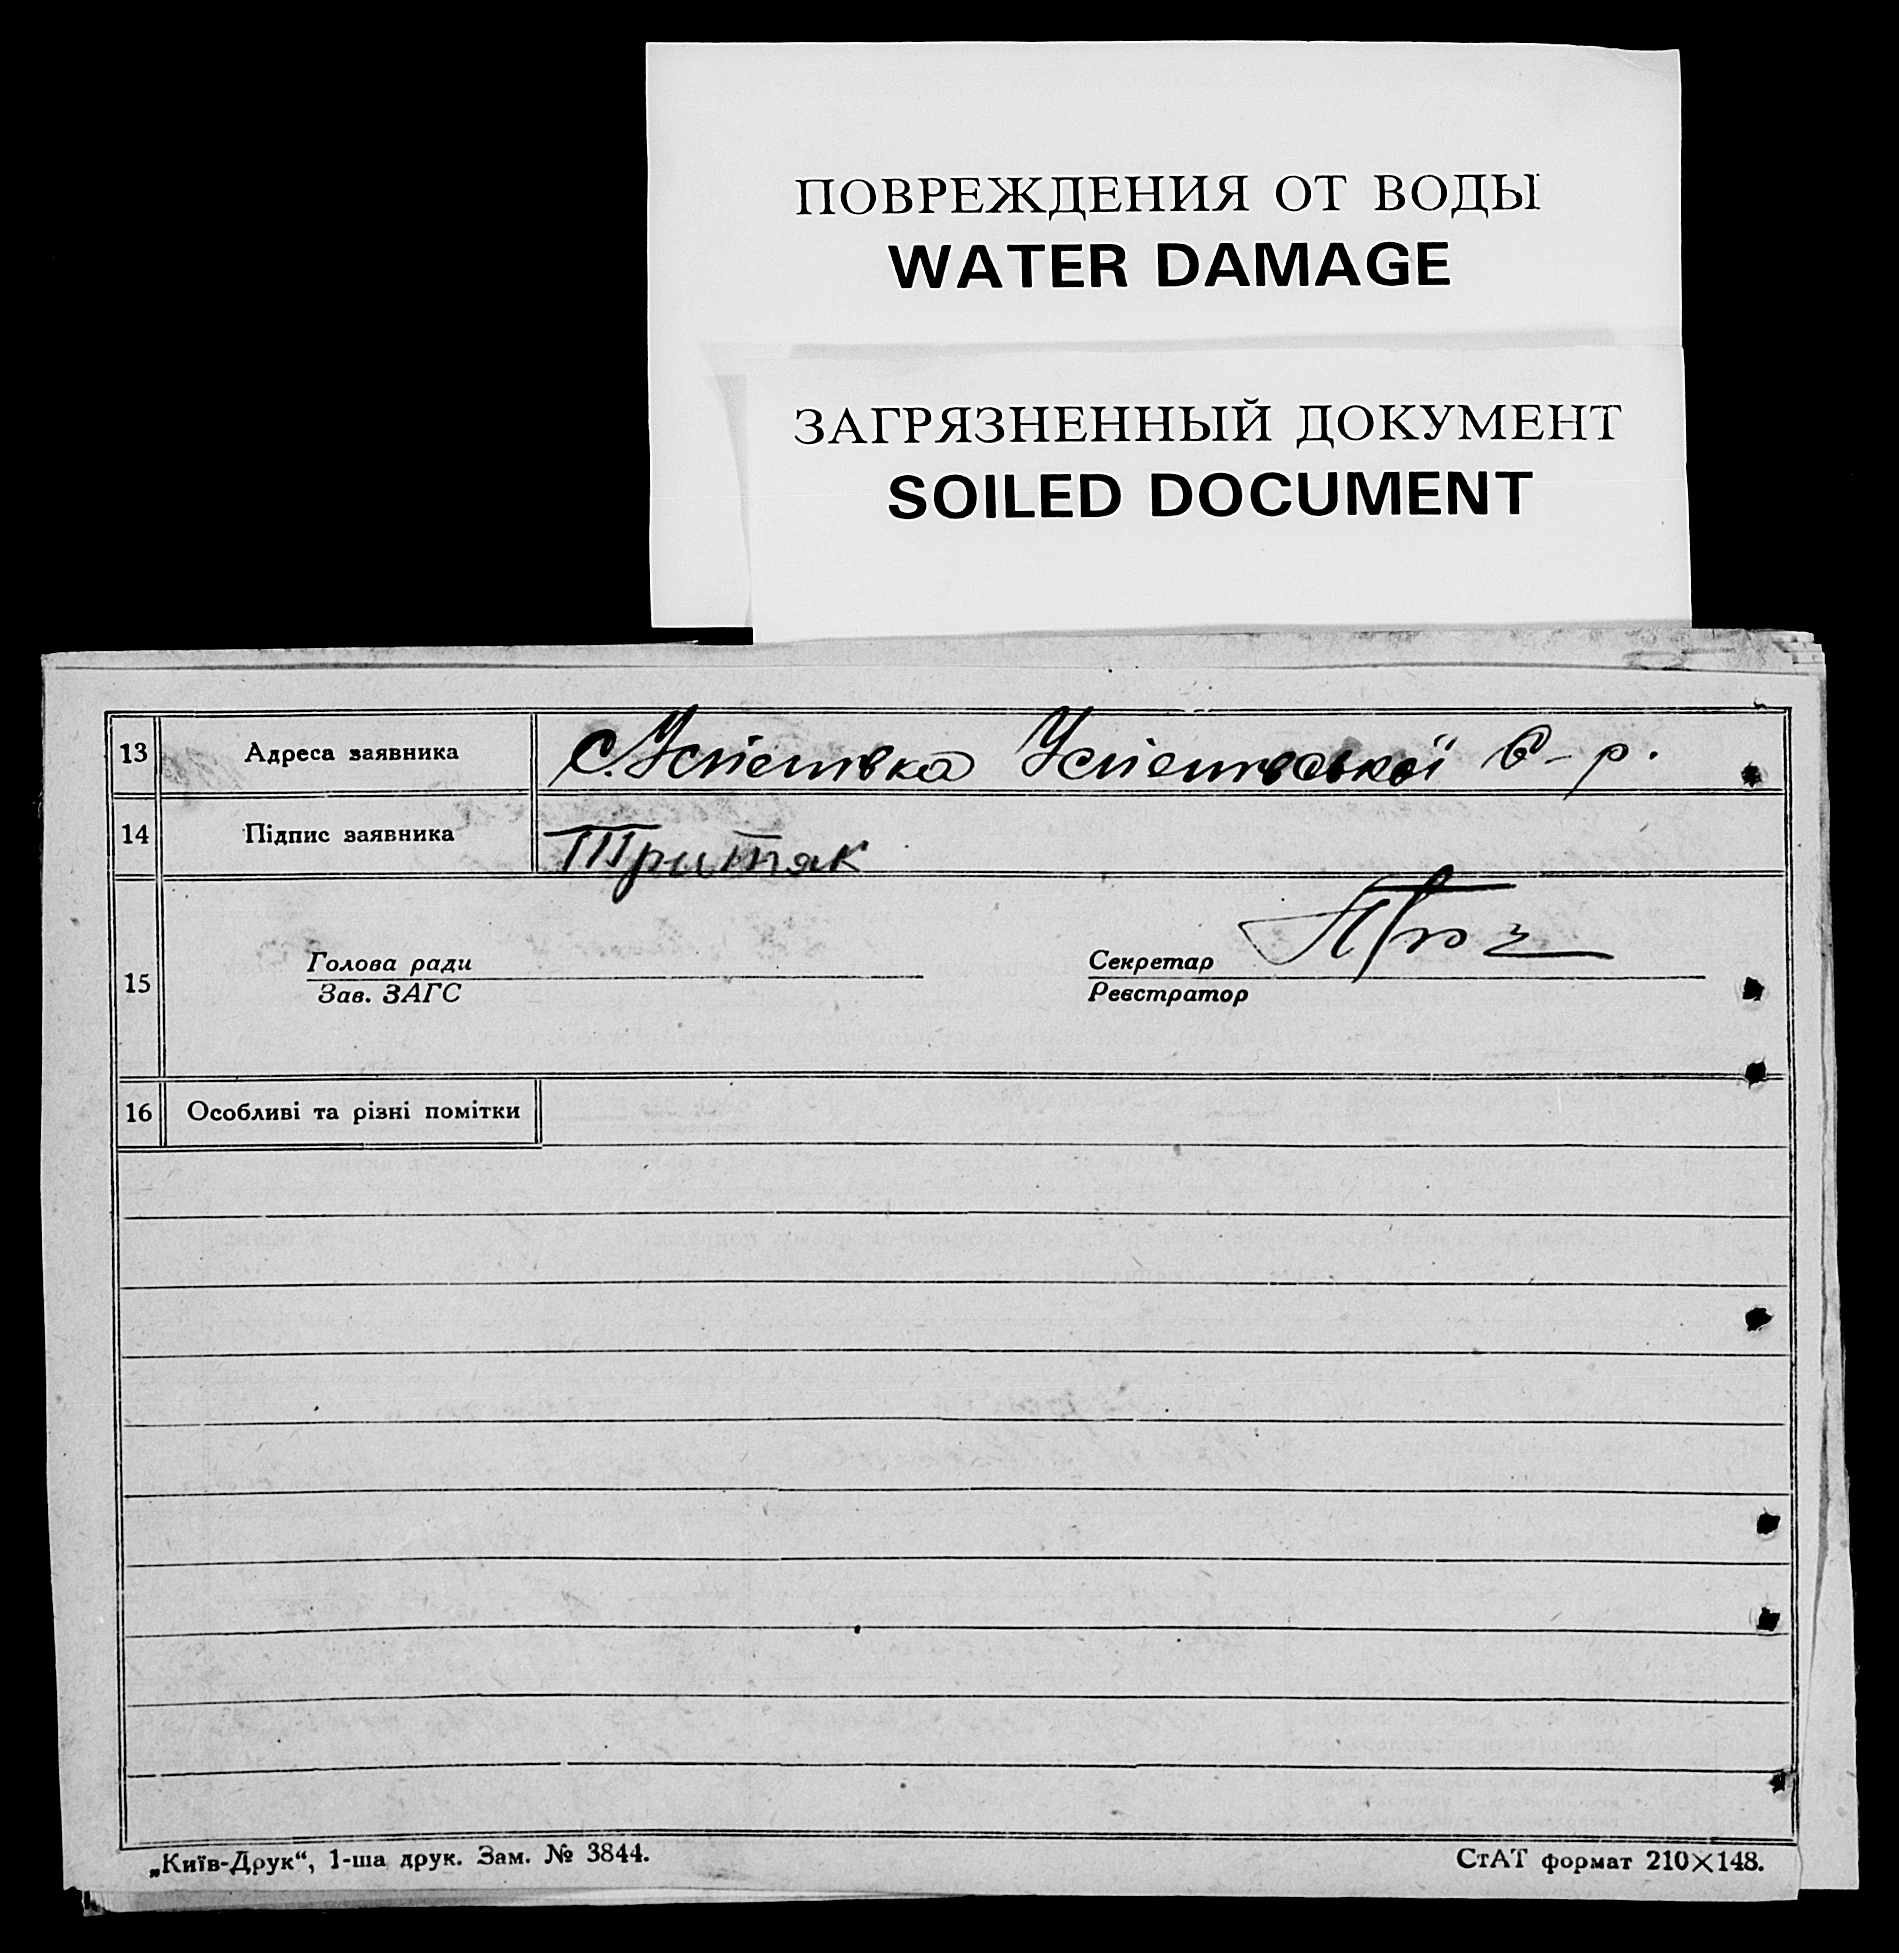 ПОВРЕЖДЕНИЯ ОТ ВОДЫ
WATER DAMAGE
ЗАГРЯЗНЕННЫЙ ДОКУМЕНТ
SOILED DOCUMENT
13 Адреса заявника
14 Підпис заявника Тритяк
Голова ради Секретар
15
Зав. ЗАГС Реєстратор
16 Особливі та різні помітки
„Київ-Друк“, 1-ша друк. Зам. № 3844. СтАТ формат 210×148.